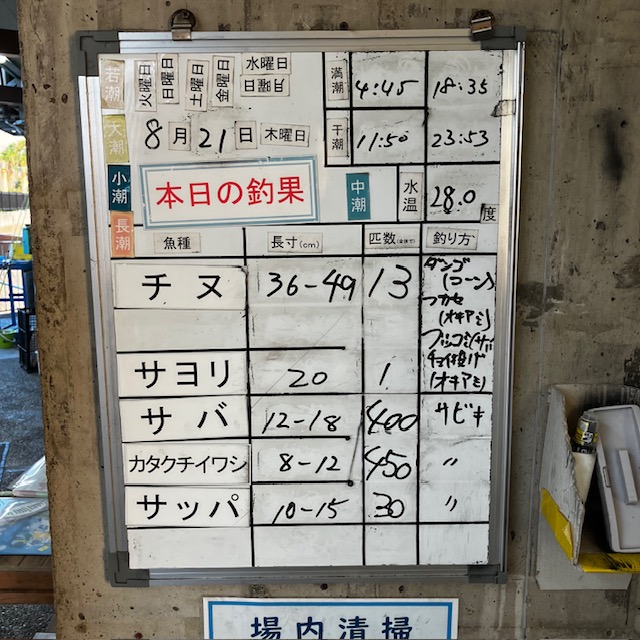 若潮 火曜日 日曜日 土曜日 金曜日 水曜日
月曜日
満潮 4:45 18:35
大潮 8月21日 木曜日
干潮 11:50 23:53
小潮 本日の釣果 中潮 水温 28.0度
長潮
魚種 長寸(cm) 匹数 釣り方
チヌ 36-49 13 ダンゴ
(コーン)
フカセ
(オキアミ)
フッコミ
(オキアミ)
サヨリ 20 1
サバ 12-18 400 サビキ
カタクチイワシ 8-12 450 〃
サッパ 10-15 30 〃
場内清掃